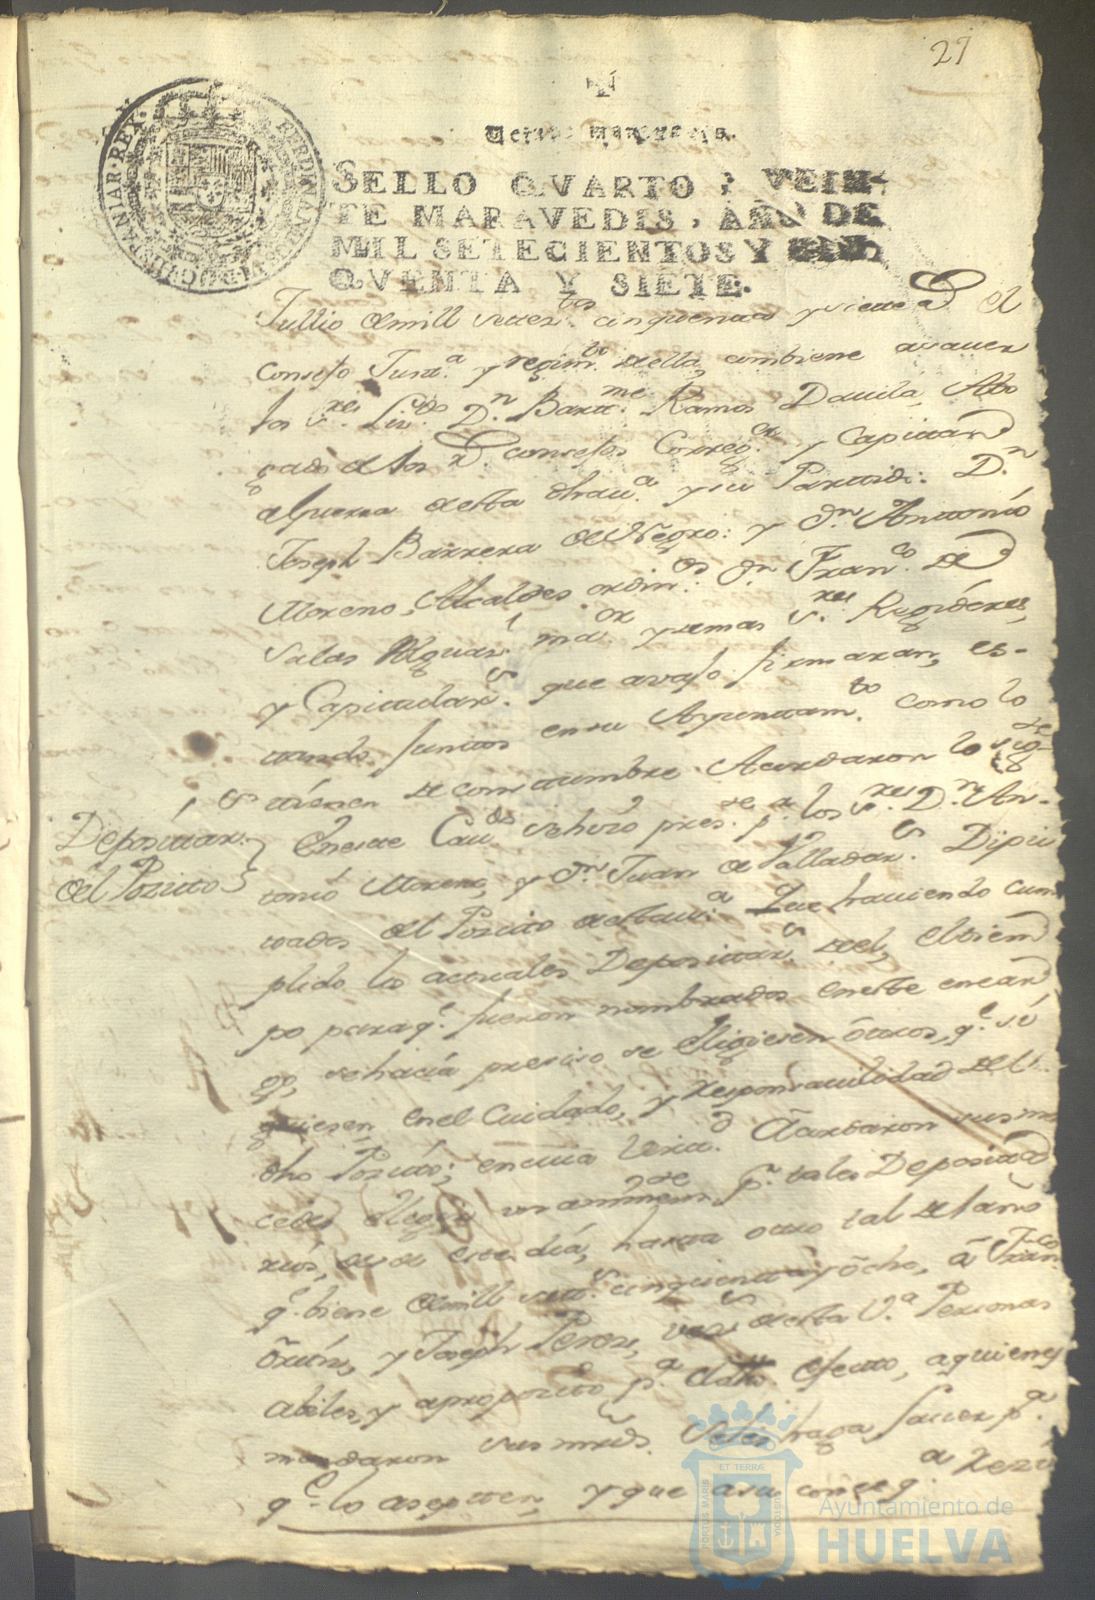 27
FERDINANDUS VI D G HISPANIAR REX
SELLO QVARTO, VEIN-
TE MARAVEDIS, AÑO DE
MIL SETECIENTOS Y CIN
QVENTA Y SIETE.
Jullio de mill settez.tos cinquenta y siette a el
Consejo Just.a y regim.to de ella, combiene a saver
los S.res Liz.do D.n Bart.me Ramos Davila, Abo
gado de los R.s consejos Correg.or y Capittan
a Guerra de esta dha v.a y su Partido: D.n
Joseph Barrera de Negro: y D.n Antonio
Moreno, Alcaldes ordin.os D.n Fran.co de
Salas Alguas.l ma.or y demas S.res Regidores,
y Capitulars. que avajo firmaran, es-
tando juntos en su Ayuntam.to como lo
tienen de comtumbre. Acordaron lo sig.te
Depositar.s
del Pozitto
En este Cav.do se hizo pres.te p.r los S.res D.n An-
tonio Moreno, y D.n Juan de Valladar.s Dipu
tados del Pozito de esta v.a Que haviendo cum
plido los actuales Depositar.s de el, el tiem
po para q.e fueron nombrados en este encar
go, se hacia preciso se eligiesen ôtros, q.e si
guiesen en el Cuidado, y responsavilidad del
dho Pozito; en cuia virtu.d Acordaron sus mr
cedes elegir unanimem.te p.r tales Deposita
rios, desde este dia, hasta otro tal del año
q.e biene de mill sett.s cinquenta y ôcho, â Fran.co
Ortiz, y Joseph Perez, vez.s de esta V.a Personas
abiles, y aproposito p.a el dho. efectto, a quienes
mandaron sus mrds. Se les haga saver p.a
q.e lo asepten, y que a su conseq.a
Ayuntamiento de
HUELVA